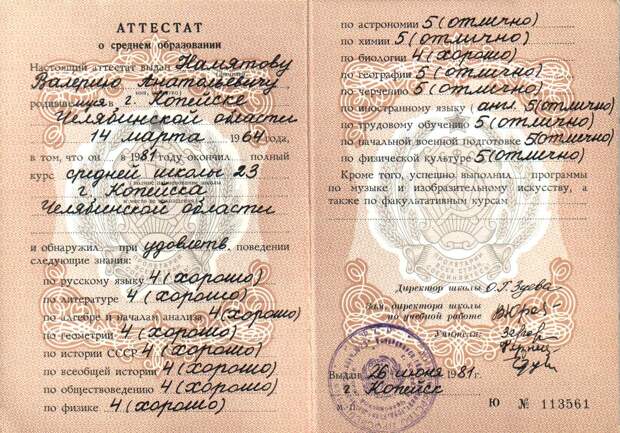 АТТЕСТАТ
о среднем образовании
Настоящий аттестат выдан Намятову
Валерию Анатольевичу
родившемуся в г. Копейске
Челябинской области
14 марта 1964 года,
в том, что он в 1981 году окончил полный
курс средней школы 23
г. Копейска
Челябинской области
и обнаружил при удовлетв. поведении
следующие знания:
по русскому языку 4 (хорошо)
по литературе 4 (хорошо)
по алгебре и началам анализа 4 (хорошо)
по геометрии 4 (хорошо)
по истории СССР 4 (хорошо)
по всеобщей истории 4 (хорошо)
по обществоведению 4 (хорошо)
по физике 4 (хорошо)
по астрономии 5 (отлично)
по химии 5 (отлично)
по биологии 4 (хорошо)
по географии 5 (отлично)
по черчению 5 (отлично)
по иностранному языку (англ. 5 (отлично)
по трудовому обучению 5 (отлично)
по начальной военной подготовке 5 (отлично)
по физической культуре 5 (отлично)
Кроме того, успешно выполнил программы
по музыке и изобразительному искусству, а
также по факультативным курсам
Директор школы О.Г. Зуева
Зам. директора школы
по учебной работе
Учителя:
Выдан 26 июня 1981 г.
г. Копейск
М. П.
Ю № 113561